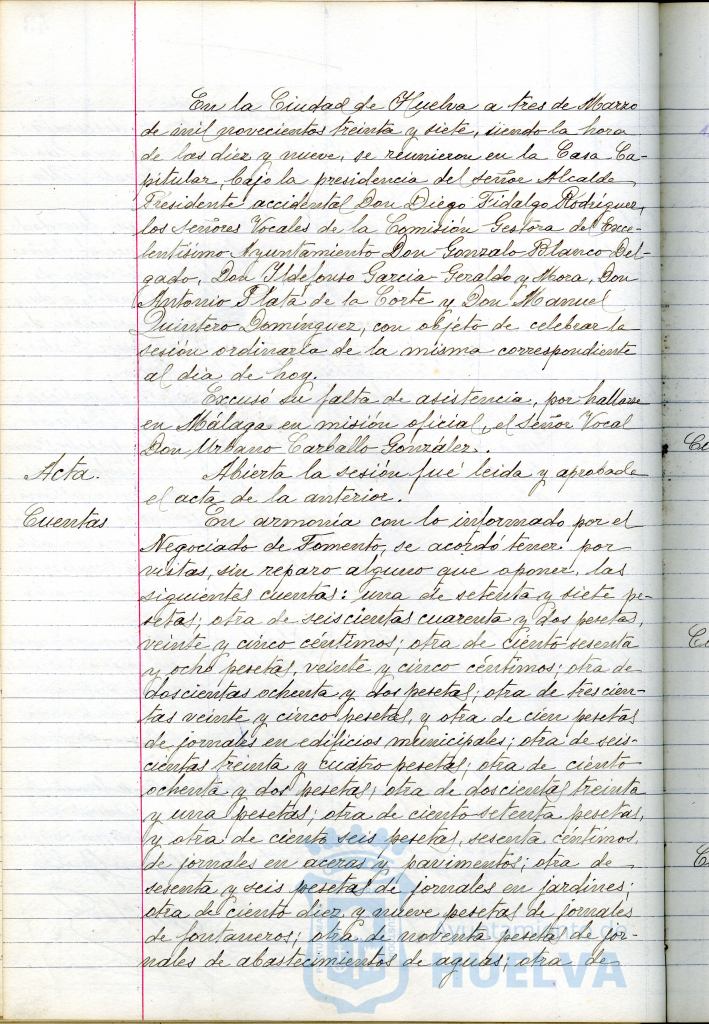 En la Ciudad de Huelva a tres de Marzo
de mil novecientos treinta y siete, siendo la hora
de las diez y nueve, se reunieron en la Casa Ca-
pitular, bajo la presidencia del señor Alcalde
Presidente accidental Don Diego Fidalgo Rodríguez,
los Señores Vocales de la Comisión Gestora del Exce-
lentísimo Ayuntamiento Don Gonzalo Blanco Del-
gado, Don Ildefonso García-Geraldo y Mora, Don
Antonio Plata de la Corte y Don Manuel
Quintero Domínguez, con objeto de celebrar la
sesión ordinaria de la misma correspondiente
al día de hoy.
Excusó su falta de asistencia, por hallarse
en Málaga en misión oficial, el Señor Vocal
Don Urbano Carballo González.
Acta. Abierta la sesión fué leída y aprobada
el acta de la anterior.
Cuentas En armonía con lo informado por el
Negociado de Fomento, se acordó tener por
vistas, sin reparo alguno que oponer, las
siguientes cuentas: una de setenta y siete pe-
setas; otra de seiscientas cuarenta y dos pesetas,
veinte y cinco céntimos; otra de ciento sesenta
y ocho pesetas, veinte y cinco céntimos; otra de
doscientas ochenta y dos pesetas; otra de trescien-
tas veinte y cinco pesetas, y otra de cien pesetas
de jornales en edificios municipales; otra de seis-
cientas treinta y cuatro pesetas; otra de ciento
ochenta y dos pesetas; otra de doscientas treinta
y una pesetas; otra de ciento setenta pesetas,
y otra de ciento seis pesetas, sesenta céntimos,
de jornales en aceras y pavimentos; otra de
setenta y seis pesetas de jornales en jardines;
otra de ciento diez y nueve pesetas de jornales
de fontaneros; otra de noventa pesetas de jor-
nales de abastecimientos de aguas; otra de
Ayuntamiento de
HUELVA